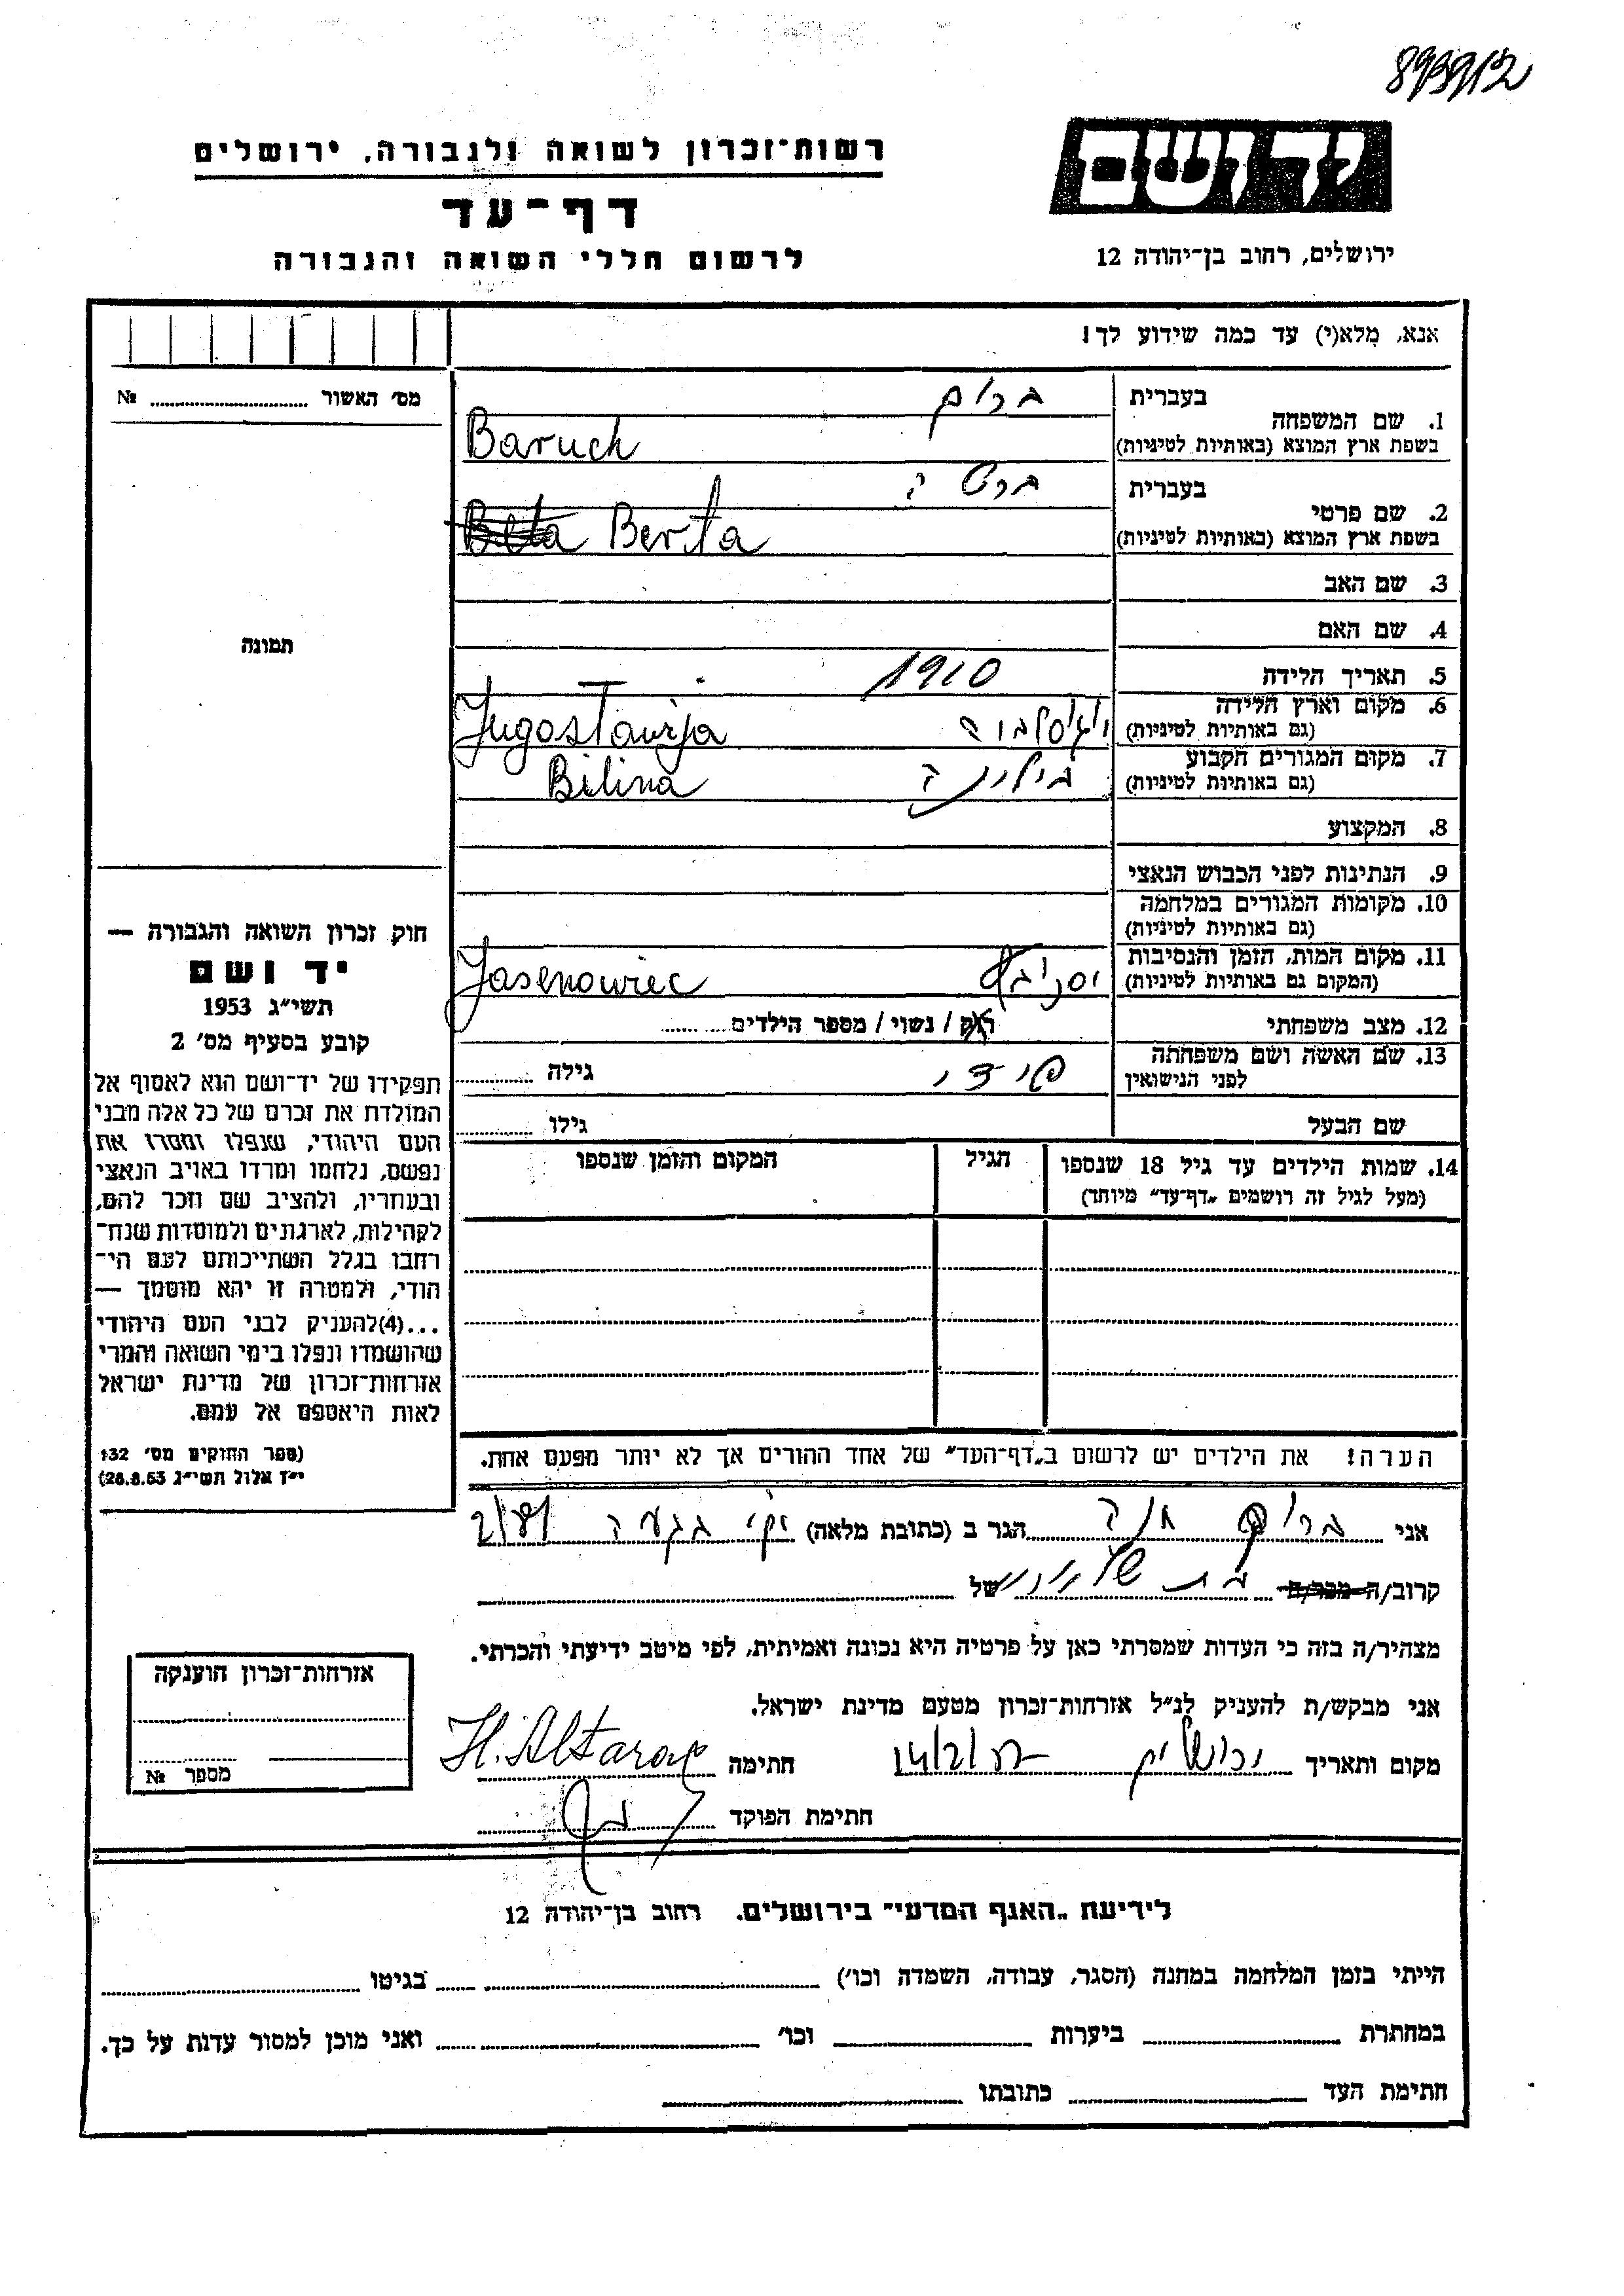 יד ושם
רשות־זכרון לשואה ולגבורה, ירושלים
דף־עד
לרשום חללי השואה והגבורה
ירושלים, רחוב בן־יהודה 12
אנא, מלא(י) עד כמה שידוע לך!
מס׳ האשור № 
תמונה
1. שם המשפחה
בעברית
בשפת ארץ המוצא (באותיות לטיניות)
Baruch
2. שם פרטי
בעברית ברטה
בשפת ארץ המוצא (באותיות לטיניות)
Berta
3. שם האב
4. שם האם
5. תאריך הלידה 1910
6. מקום וארץ הלידה
(גם באותיות לטיניות) יוגוסלביה Jugoslawija
7. מקום המגורים הקבוע
(גם באותיות לטיניות) בילינה Bilina
8. המקצוע
9. הנתינות לפני הכבוש הנאצי
10. מקומות המגורים במלחמה
(גם באותיות לטיניות)
11. מקום המות, הזמן והנסיבות
(המקום גם באותיות לטיניות) Jasenowiec
12. מצב משפחתי רוק / נשוי / מספר הילדים
13. שם האשה ושם משפחתה
לפני הנישואין
גילה
שם הבעל
גילו
14. שמות הילדים עד גיל 18 שנספו
(מעל לגיל זה רושמים „דף־עד״ מיוחד)
הגיל
המקום והזמן שנספו
הערה! את הילדים יש לרשום ב„דף־העד״ של אחד ההורים אך לא יותר מפעם אחת.
חוק זכרון השואה והגבורה —
יד ושם
תשי״ג 1953
קובע בסעיף מס׳ 2
תפקידו של יד־ושם הוא לאסוף אל
המולדת את זכרם של כל אלה מבני
העם היהודי, שנפלו ומסרו את
נפשם, נלחמו ומרדו באויב הנאצי
ובעוזריו, ולהציב שם וזכר להם,
לקהילות, לארגונים ולמוסדות שנח־
רבו בגלל השתייכותם לעם הי־
הודי, ולמטרה זו יהא מוסמך —
...(4) להעניק לבני העם היהודי
שהושמדו ונפלו בימי השואה והמרי
אזרחות־זכרון של מדינת ישראל
לאות היאספם אל עמם.
(ספר החוקים מס׳ 132
י״ז אלול תשי״ג 28.8.53)
אני חנה הגר ב (כתובת מלאה)
קרוב/ה מכר/ה של
מצהיר/ה בזה כי העדות שמסרתי כאן על פרטיה היא נכונה ואמיתית, לפי מיטב ידיעתי והכרתי.
אני מבקש/ת להעניק לנ״ל אזרחות־זכרון מטעם מדינת ישראל.
מקום ותאריך ירושלים חתימה H. Altarac
חתימת הפוקד
אזרחות־זכרון הוענקה
מספר №
לידיעת „האגף המדעי״ בירושלים. רחוב בן־יהודה 12
הייתי בזמן המלחמה במחנה (הסגר, עבודה, השמדה וכו׳) בגיטו
במחתרת ביערות וכו׳ ואני מוכן למסור עדות על כך.
חתימת העד כתובתו